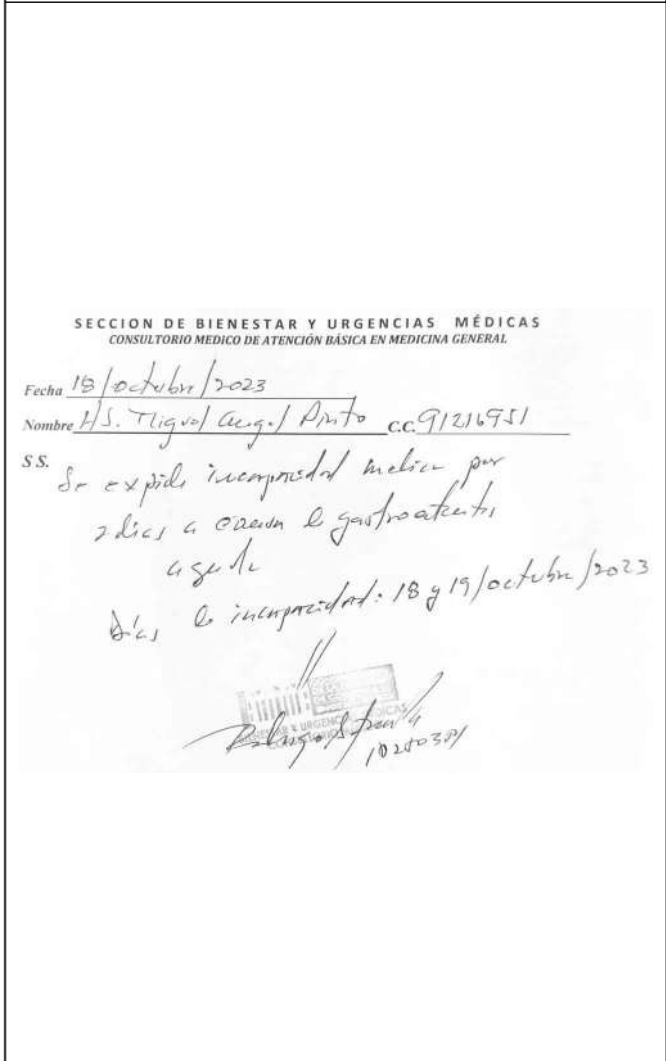 SECCION DE BIENESTAR Y URGENCIAS MÉDICAS
CONSULTORIO MEDICO DE ATENCIÓN BÁSICA EN MEDICINA GENERAL
Fecha 18/octubre/2023
Nombre H/S. Miguel Angel Pinto C.C. 91216951
S S.
Se expide incapacidad medica por
2 dias a causa de gastroenteritis
aguda
Días de incapacidad: 18 y 19/octubre/2023
BIENESTAR Y URGENCIAS MÉDICAS
CONSULTORIO